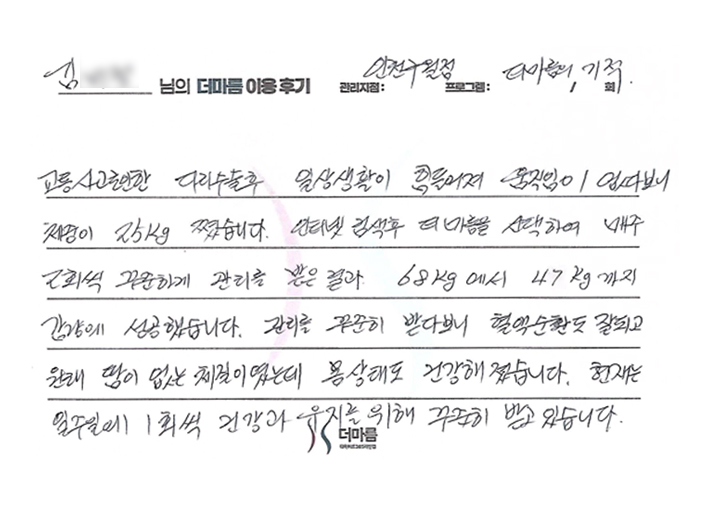 김 님의 더마름 이용 후기 관리지점: 인천구월점 프로그램: 더마름의 기적 / 회
교통사고로인한 다리수술후 일상생활이 힘들어져 움직임이 없다보니
체중이 25kg 쪘습니다. 인터넷 검색후 더마름을 선택하여 매주
2회씩 꾸준하게 관리를 받은 결과 68kg에서 47kg까지
감량에 성공했습니다. 관리를 꾸준히 받다보니 혈액순환도 잘되고
원래 땀이 없는 체질이였는데 몸상태도 건강해졌습니다. 현재는
일주일에 1회씩 건강과 유지를 위해 꾸준히 받고 있습니다.
더마름